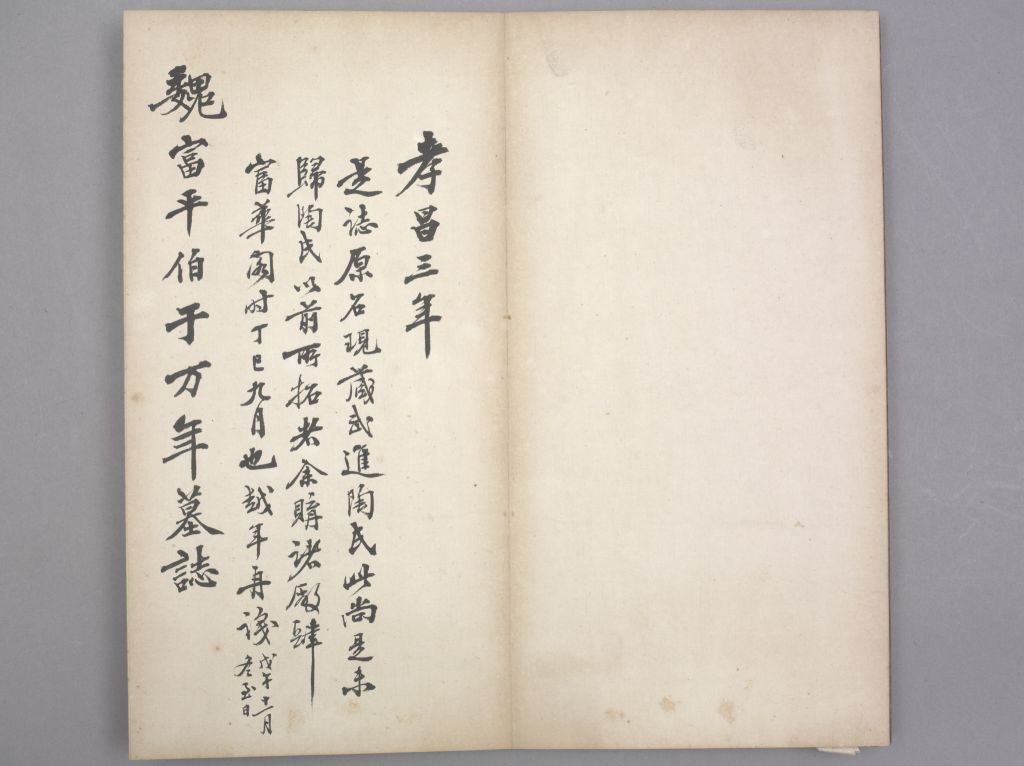 孝昌三年
是誌原石現藏武進陶氏此尚是未
歸陶氏以前所拓者余購諸厰肆
富華閣时丁巳九月也越年再識
戊午十一月
冬至日
魏富平伯于万年墓誌